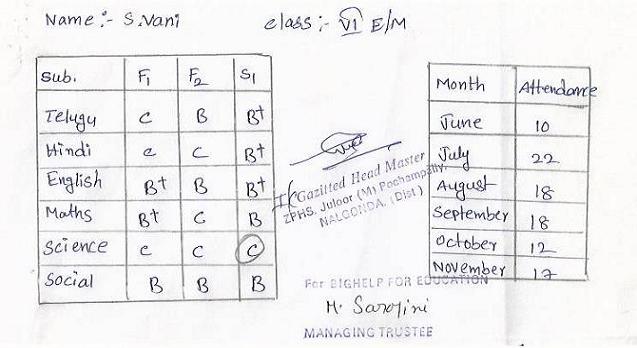 Name :- S.Vani class :- VI E/M
Sub. F1 F2 S1
Telugu C B B+
Hindi C C B+
English B+ B B+
Maths B+ C B
Science C C C
Social B B B
Month Attendance
June 10
July 22
August 18
September 18
October 12
November 17
Gazitted Head Master
ZPHS, Juloor (M) Pochampally,
NALGONDA. (Dist)
For BIGHELP FOR EDUCATION
M. Sarojini
MANAGING TRUSTEE